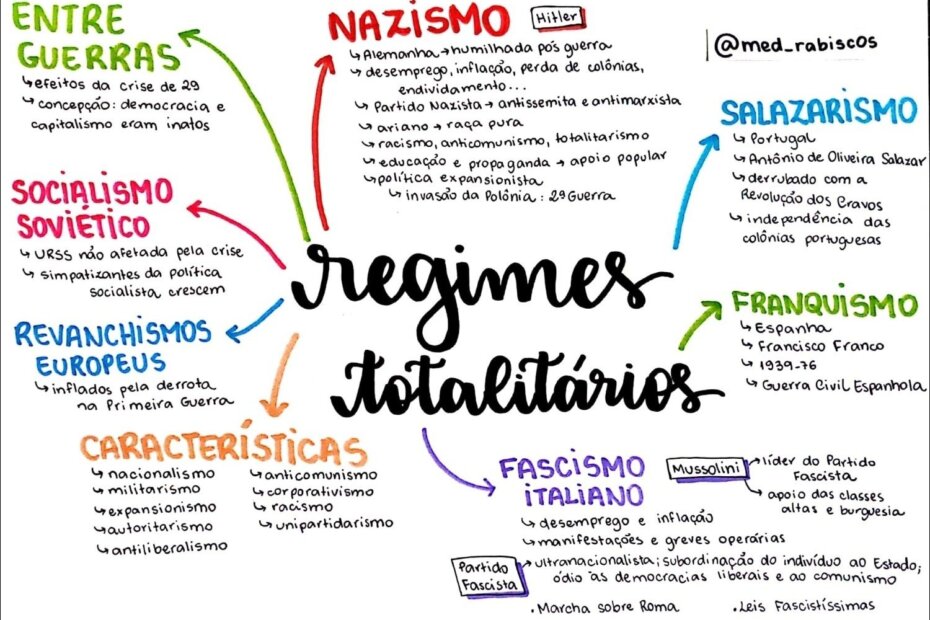 ENTRE
GUERRAS
↳ efeitos da crise de 29
↳ concepção: democracia e
capitalismo eram inatos
NAZISMO
Hitler
↳ Alemanha → humilhada pós guerra
↳ desemprego, inflação, perda de colônias,
endividamento...
↳ Partido Nazista → antissemita e antimarxista
↳ ariano → raça pura
↳ racismo, anticomunismo, totalitarismo
↳ educação e propaganda → apoio popular
↳ política expansionista
↳ invasão da Polônia: 2ª Guerra
@med_rabiscos
SALAZARISMO
↳ Portugal
↳ Antônio de Oliveira Salazar
↳ derrubado com a
Revolução dos Cravos
↳ independência das
colônias portuguesas
SOCIALISMO
SOVIÉTICO
↳ URSS não afetada pela crise
↳ simpatizantes da política
socialista crescem
regimes
totalitários
REVANCHISMOS
EUROPEUS
↳ inflados pela derrota
na Primeira Guerra
FRANQUISMO
↳ Espanha
↳ Francisco Franco
↳ 1939-76
↳ Guerra Civil Espanhola
CARACTERÍSTICAS
↳ nacionalismo
↳ militarismo
↳ expansionismo
↳ autoritarismo
↳ antiliberalismo
↳ anticomunismo
↳ corporativismo
↳ racismo
↳ unipartidarismo
FASCISMO
ITALIANO
Mussolini
↳ líder do Partido
Fascista
↳ apoio das classes
altas e burguesia
↳ desemprego e inflação
↳ manifestações e greves operárias
Partido
Fascista
↳ ultranacionalista; subordinação do indivíduo ao Estado;
ódio às democracias liberais e ao comunismo
. Marcha sobre Roma
. Leis Fascistíssimas